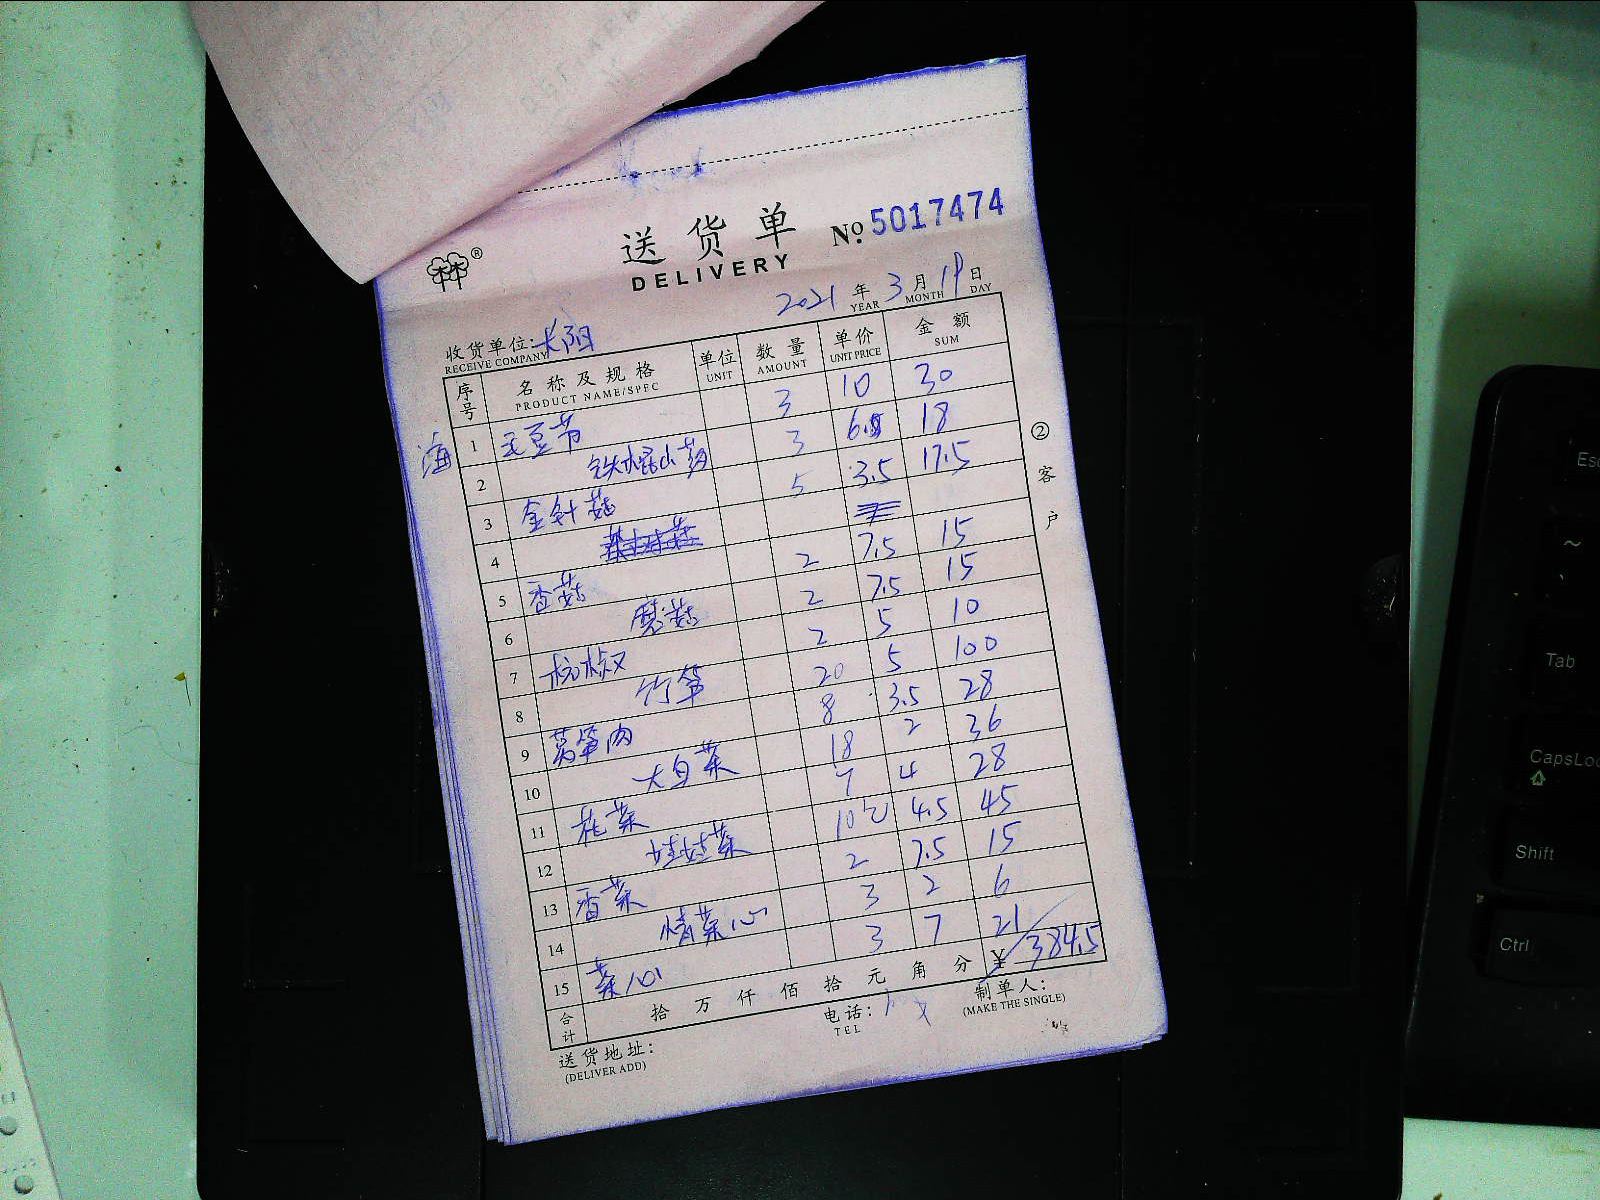 送货单
№ 5017474
DELIVERY
2021 年 3 月 19 日
YEAR MONTH DAY
收货单位: 长阳
RECEIVE COMPANY
序号 名称及规格 单位 数量 单价 金额
PRODUCT NAME/SPEC UNIT AMOUNT UNIT PRICE SUM
海
1 毛豆节 3 10 30
2 铁棍山药 3 6. 18
3 金针菇 5 3.5 17.5
4
5 香菇 2 7.5 15
6 蘑菇 2 7.5 15
7 杭椒 2 5 10
8 竹笋 20 5 100
9 莴笋肉 8 3.5 28
10 大白菜 18 2 36
11 花菜 7 4 28
12 娃娃菜 10 4.5 45
13 香菜 2 7.5 15
14 菜心 3 2 6
15 菜心 3 7 21
合计 拾 万 仟 佰 拾 元 角 分 ¥ 384.5
送货地址: 电话: 制单人:
(DELIVER ADD) TEL (MAKE THE SINGLE)
② 客户
Esc
~
Tab
CapsLoc
Shift
Ctrl